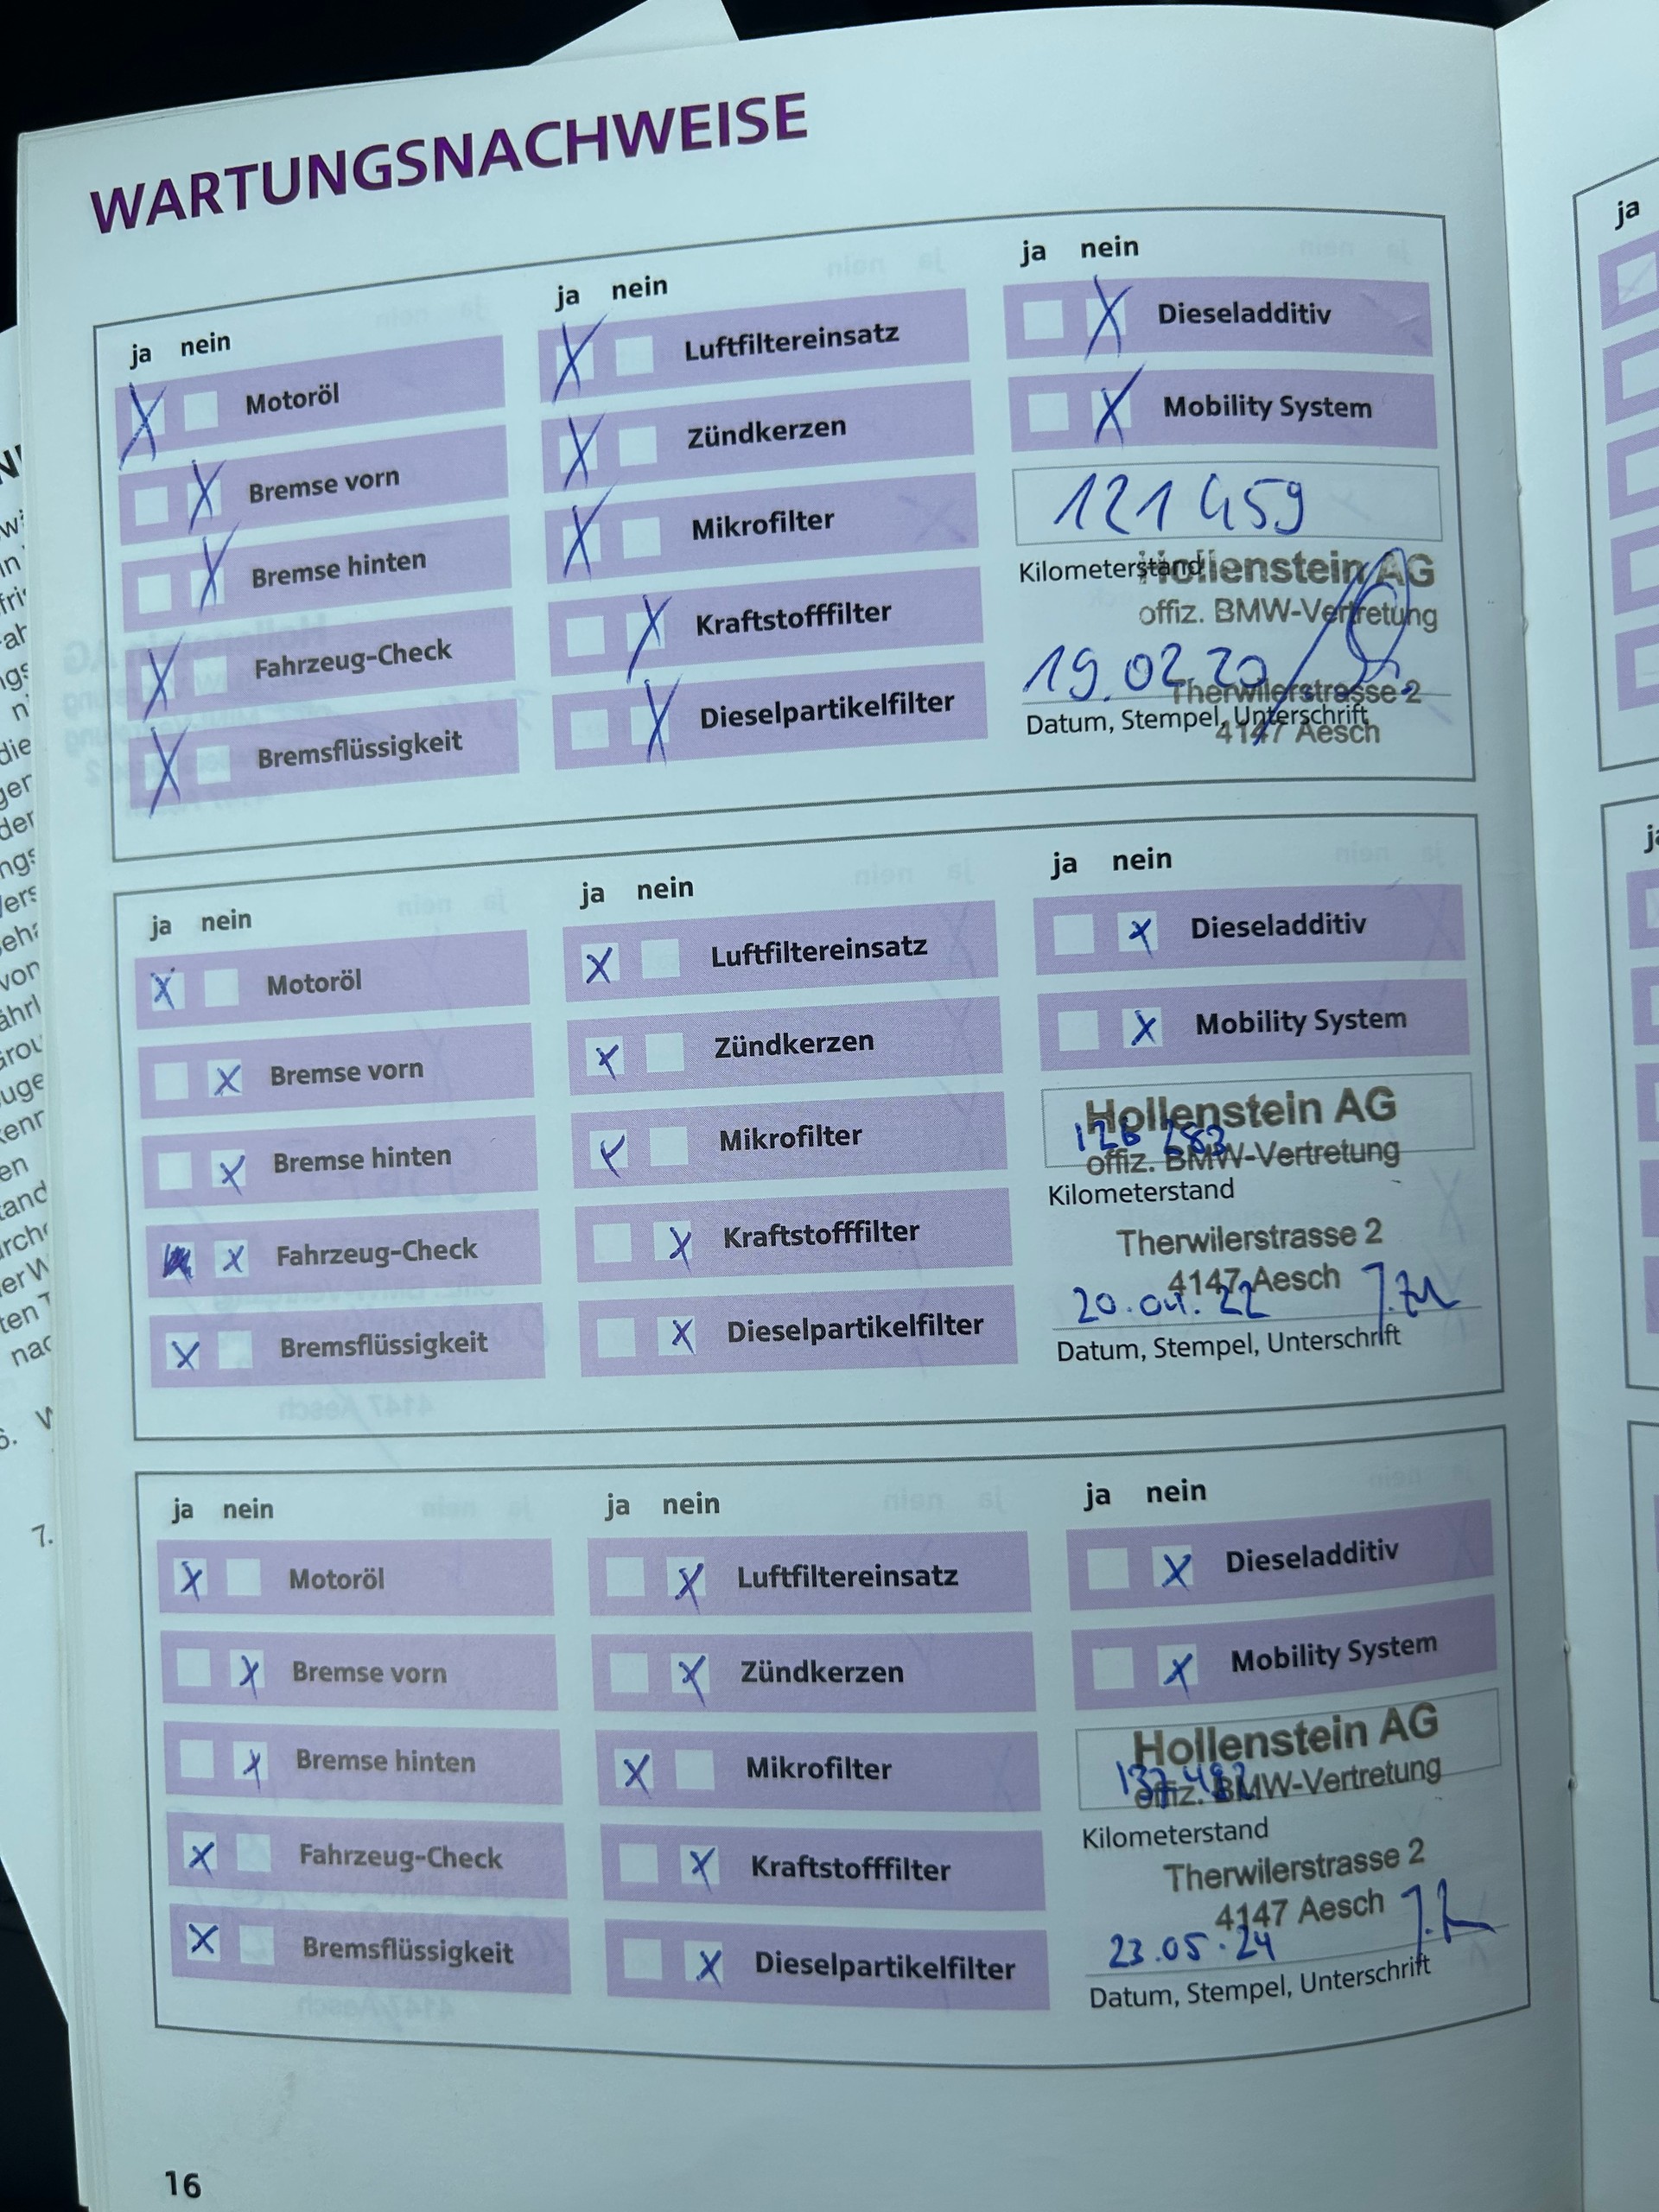 WARTUNGSNACHWEISE
ja nein
X Motoröl
X Bremse vorn
X Bremse hinten
X Fahrzeug-Check
X Bremsflüssigkeit
ja nein
X Luftfiltereinsatz
X Zündkerzen
X Mikrofilter
X Kraftstofffilter
X Dieselpartikelfilter
ja nein
X Dieseladditiv
X Mobility System
121 459
Kilometerstand
Hollenstein AG
offiz. BMW-Vertretung
19.02.20
Therwilerstrasse 2
Datum, Stempel, Unterschrift
4147 Aesch
ja nein
X Motoröl
X Bremse vorn
X Bremse hinten
X Fahrzeug-Check
X Bremsflüssigkeit
ja nein
X Luftfiltereinsatz
X Zündkerzen
X Mikrofilter
X Kraftstofffilter
X Dieselpartikelfilter
ja nein
X Dieseladditiv
X Mobility System
Hollenstein AG
offiz. BMW-Vertretung
Kilometerstand
Therwilerstrasse 2
4147 Aesch
20.04.22
Datum, Stempel, Unterschrift
ja nein
X Motoröl
X Bremse vorn
X Bremse hinten
X Fahrzeug-Check
X Bremsflüssigkeit
ja nein
X Luftfiltereinsatz
X Zündkerzen
X Mikrofilter
X Kraftstofffilter
X Dieselpartikelfilter
ja nein
X Dieseladditiv
X Mobility System
Hollenstein AG
offiz. BMW-Vertretung
Kilometerstand
Therwilerstrasse 2
4147 Aesch
23.05.24
Datum, Stempel, Unterschrift
16
ja